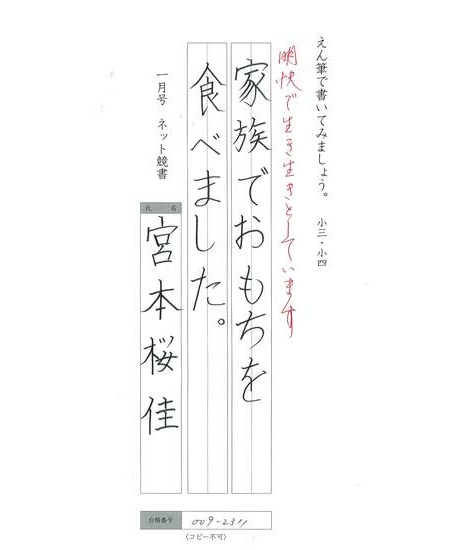 えん筆で書いてみましょう。 小三・小四
明快で生き生きとしています
家族でおもちを
食べました。
一月号 ネット競書
氏 名
宮本桜佳
合格番号 009-2311
(コピー不可)